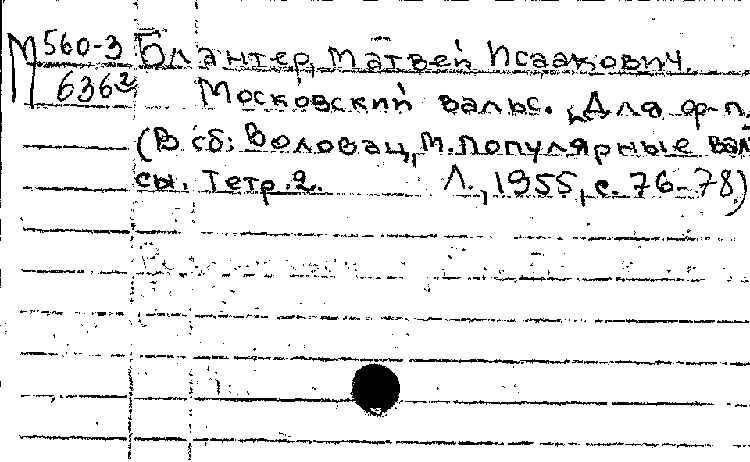 М 560-3 Блантер, Матвей Исаакович.
6362 Московский вальс. Для ф-п.
(В сб: Воловац, М. Популярные валь
сы. Тетр. 2. Л., 1955, с. 76-78)